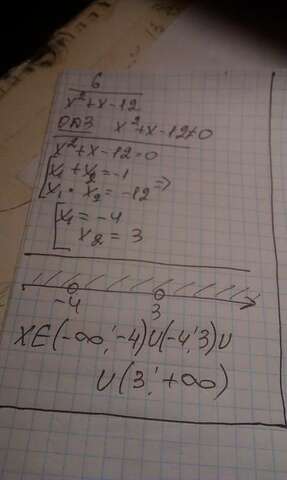 6
x²+x-12
ОДЗ x²+x-12≠0
x²+x-12=0
x₁+x₂=-1
x₁·x₂=-12 =>
x₁=-4
x₂=3
-4 3
XE(-∞;-4)U(-4;3)U
U(3;+∞)